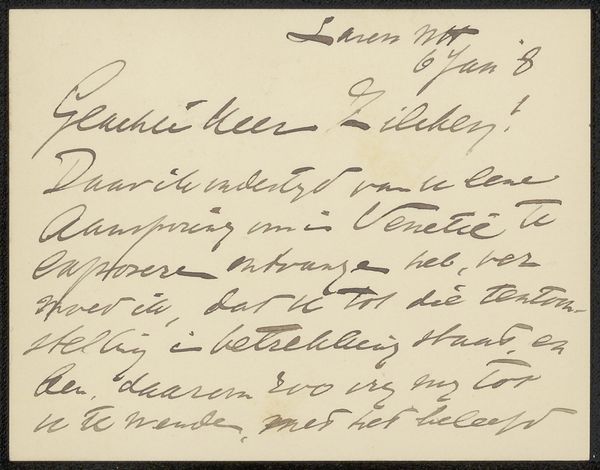 Laren NH
6 Jan 8
Geachte Heer Zilcken!
Daar ik indertyd van u eene
Aansporing om in Venetië te
exposeren ontvangen heb, ver
moed ik, dat u tot die tentoon-
stelling in betrekking staat, en
ben daarom zoo vry my tot
u te wenden, met het beleefd